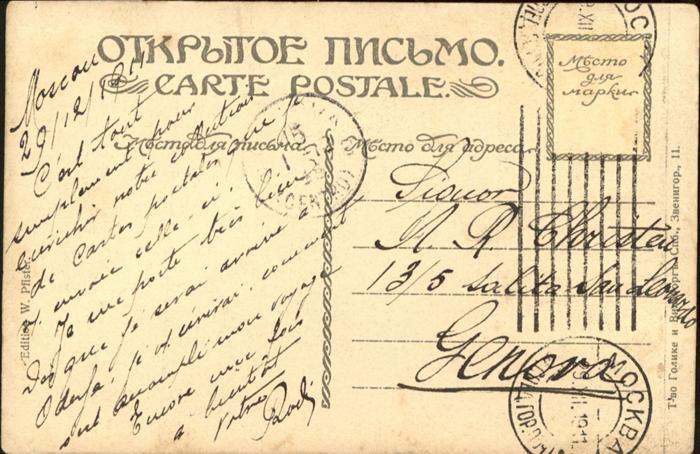 ОТКРЫТОЕ ПИСЬМО.
CARTE POSTALE.
Мѣсто для марки
Мѣсто для письма
Мѣсто для адреса
Moscou
29/12/1911
C'est tout
simplement pour
enrichir notre collection
de cartes postales que je
envoie celle-ci.
Je me porte très bien
Dès que je serai arrivé à
Odessa je écrirai comment
s'est accompli mon voyage
Encore une fois
a bientôt
votre
Rodi
Signor
R. Christen
13/5 Salita San
Genova
Edition W. Pfister
Т-во Голике и Вильборгъ. Спб., Звенигор., 11.
МОСКВА